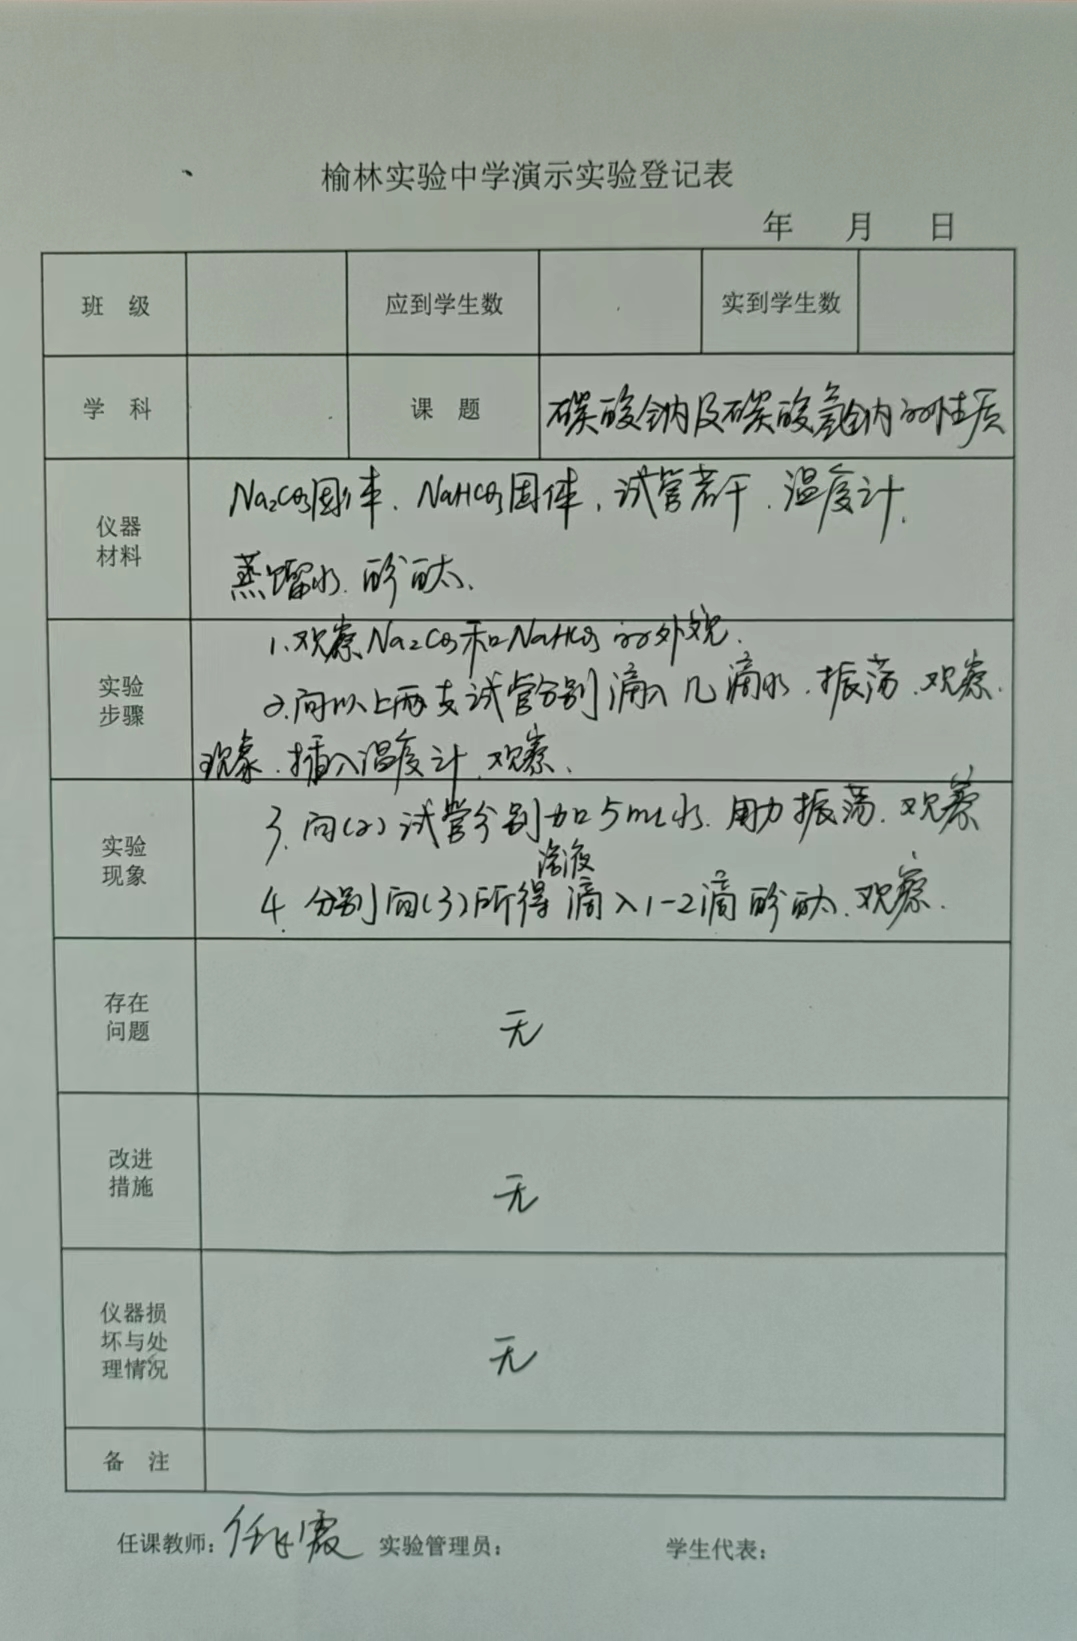 榆林实验中学演示实验登记表
年 月 日
班 级 应到学生数 实到学生数
学 科 课 题 碳酸钠及碳酸氢钠的性质
仪器
材料
Na₂CO₃固体、NaHCO₃固体、试管若干、温度计、
蒸馏水、酚酞、
实验
步骤
1、观察Na₂CO₃和NaHCO₃的外观.
2、向以上两支试管分别滴入几滴水、振荡、观察
现象、插入温度计、观察、
实验
现象
3、向(2)试管分别加5mL水、用力振荡、观察
溶液
4、分别向(3)所得滴入1-2滴酚酞、观察.
存在
问题
无
改进
措施
无
仪器损
坏与处
理情况
无
备 注
任课教师: 实验管理员: 学生代表: